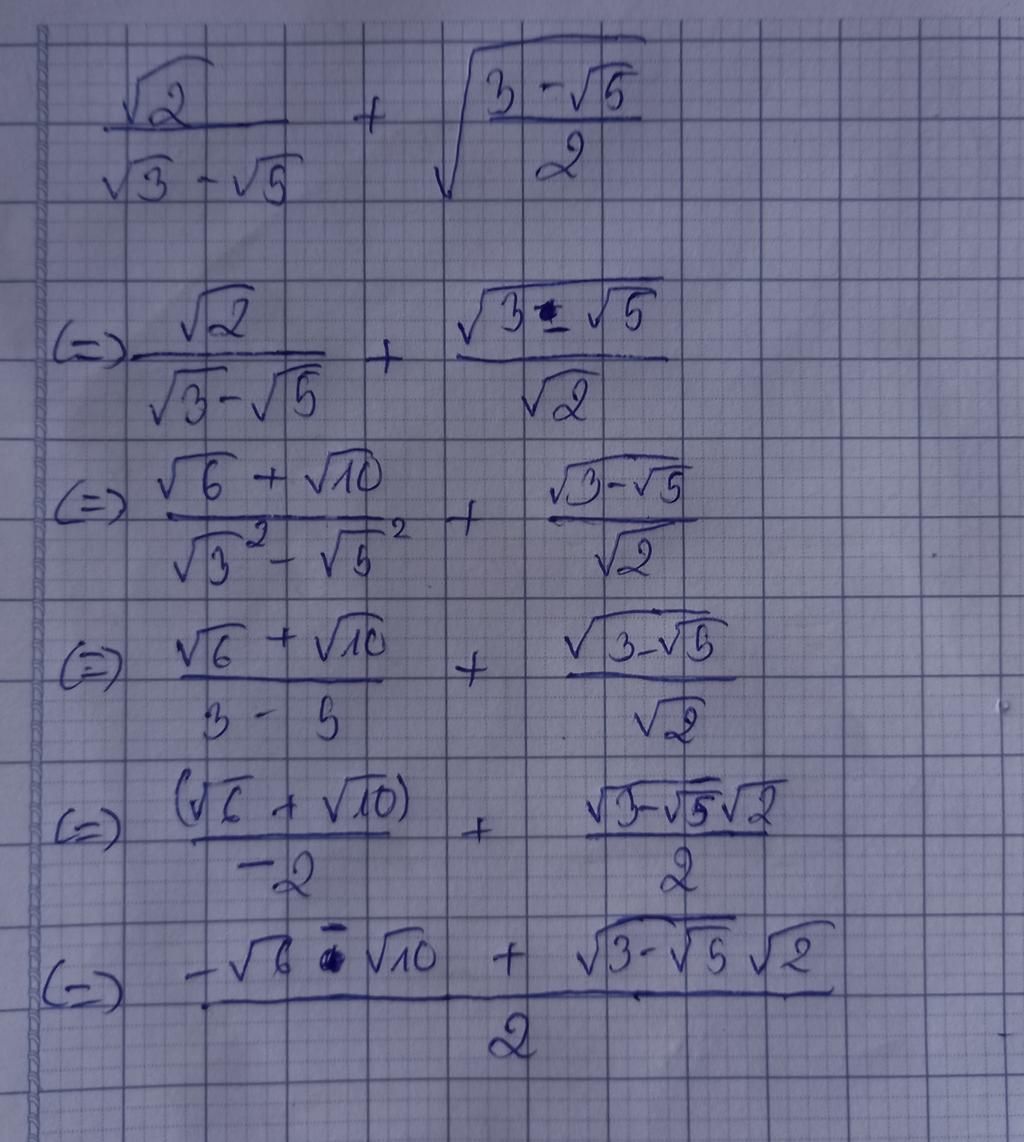 √2/(√3 - √5) + √((3 - √5)/2)
(=) √2/(√3 - √5) + √(3 - √5)/√2
(=) (√6 + √10)/(√3² - √5²) + √(3-√5)/√2
(=) (√6 + √10)/(3 - 5) + √(3-√5)/√2
(=) (√6 + √10)/-2 + √(3-√5)√2/2
(=) (-√6 - √10 + √(3-√5) √2)/2